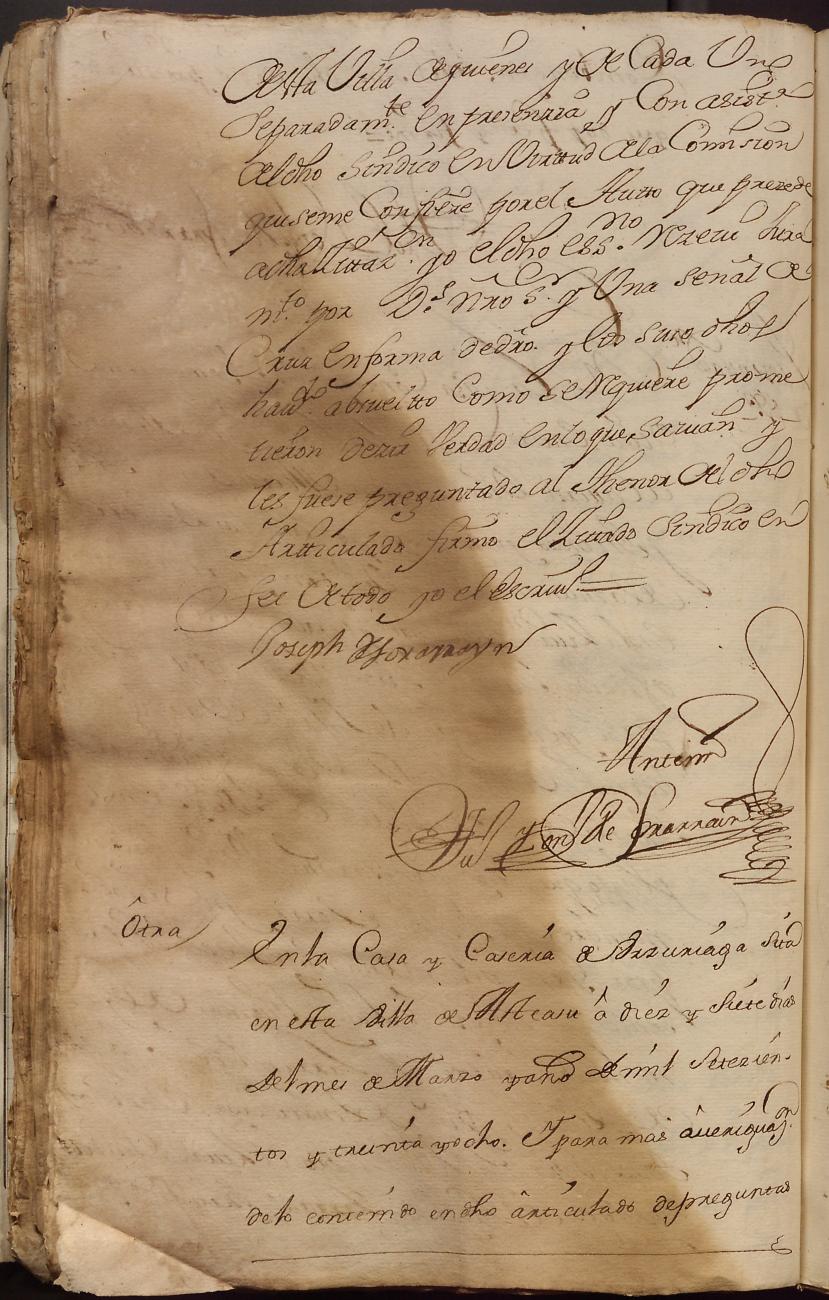 desta Villa de quienes y de Cada Uno
Separadam.te en presenzia y Con asist.a
del dho Sindico en Virttud de la Comision
que seme Confiere por el Autto que prezede
a cha Littaz.on yo el dho ess.no Rezevi Jura
m.to por D.s Nro S.r y Una señal de
Cruz en forma de dro. y lo suso dhos
havd.o absuelto Como se Requiere prome
tieron dezir Verdad en lo que Savian y
les fuese preguntado al thenor del dho
Artticulado firmo el Jurado Sindico en
fee de todo yo el escriv.o
Joseph
Antemi
de
Otra
En la Casa y Caseria de Arzuriaga sita
en esta Villa de Alteasu â diéz y siete dias
del mes de Marzo y año de mil Setezien-
tos y treinta y ocho. Y para mas âveriguaz.on
delo contenido en dho ârticulado de preguntas